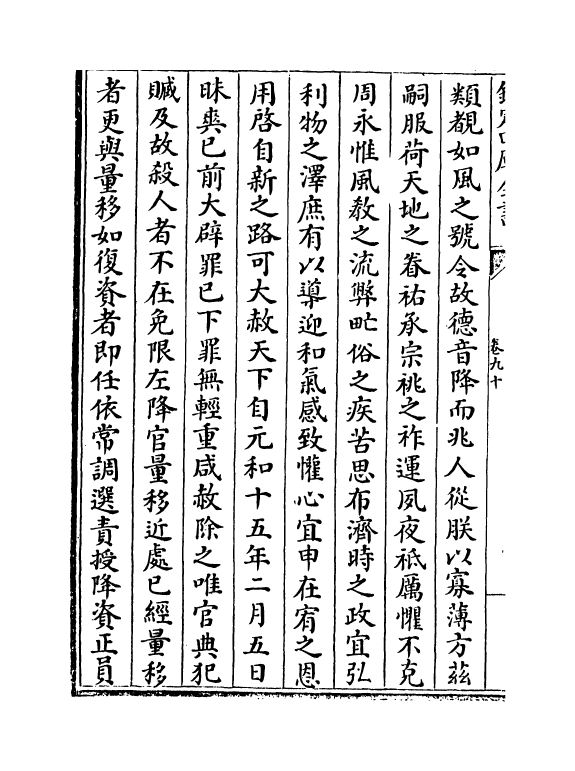 欽定四庫全書
卷九十
類覩如風之號令故德音降而兆人從朕以寡薄方茲
嗣服荷天地之眷祐承宗祧之祚運夙夜祗厲懼不克
周永惟風敎之流弊甿俗之疾苦思布濟時之政宜弘
利物之澤庶有以導迎和氣感致懽心宜申在宥之恩
用啓自新之路可大赦天下自元和十五年二月五日
昧爽已前大辟罪已下罪無輕重咸赦除之唯官典犯
贓及故殺人者不在免限左降官量移近處已經量移
者更與量移如復資者即任依常調選責授降資正員